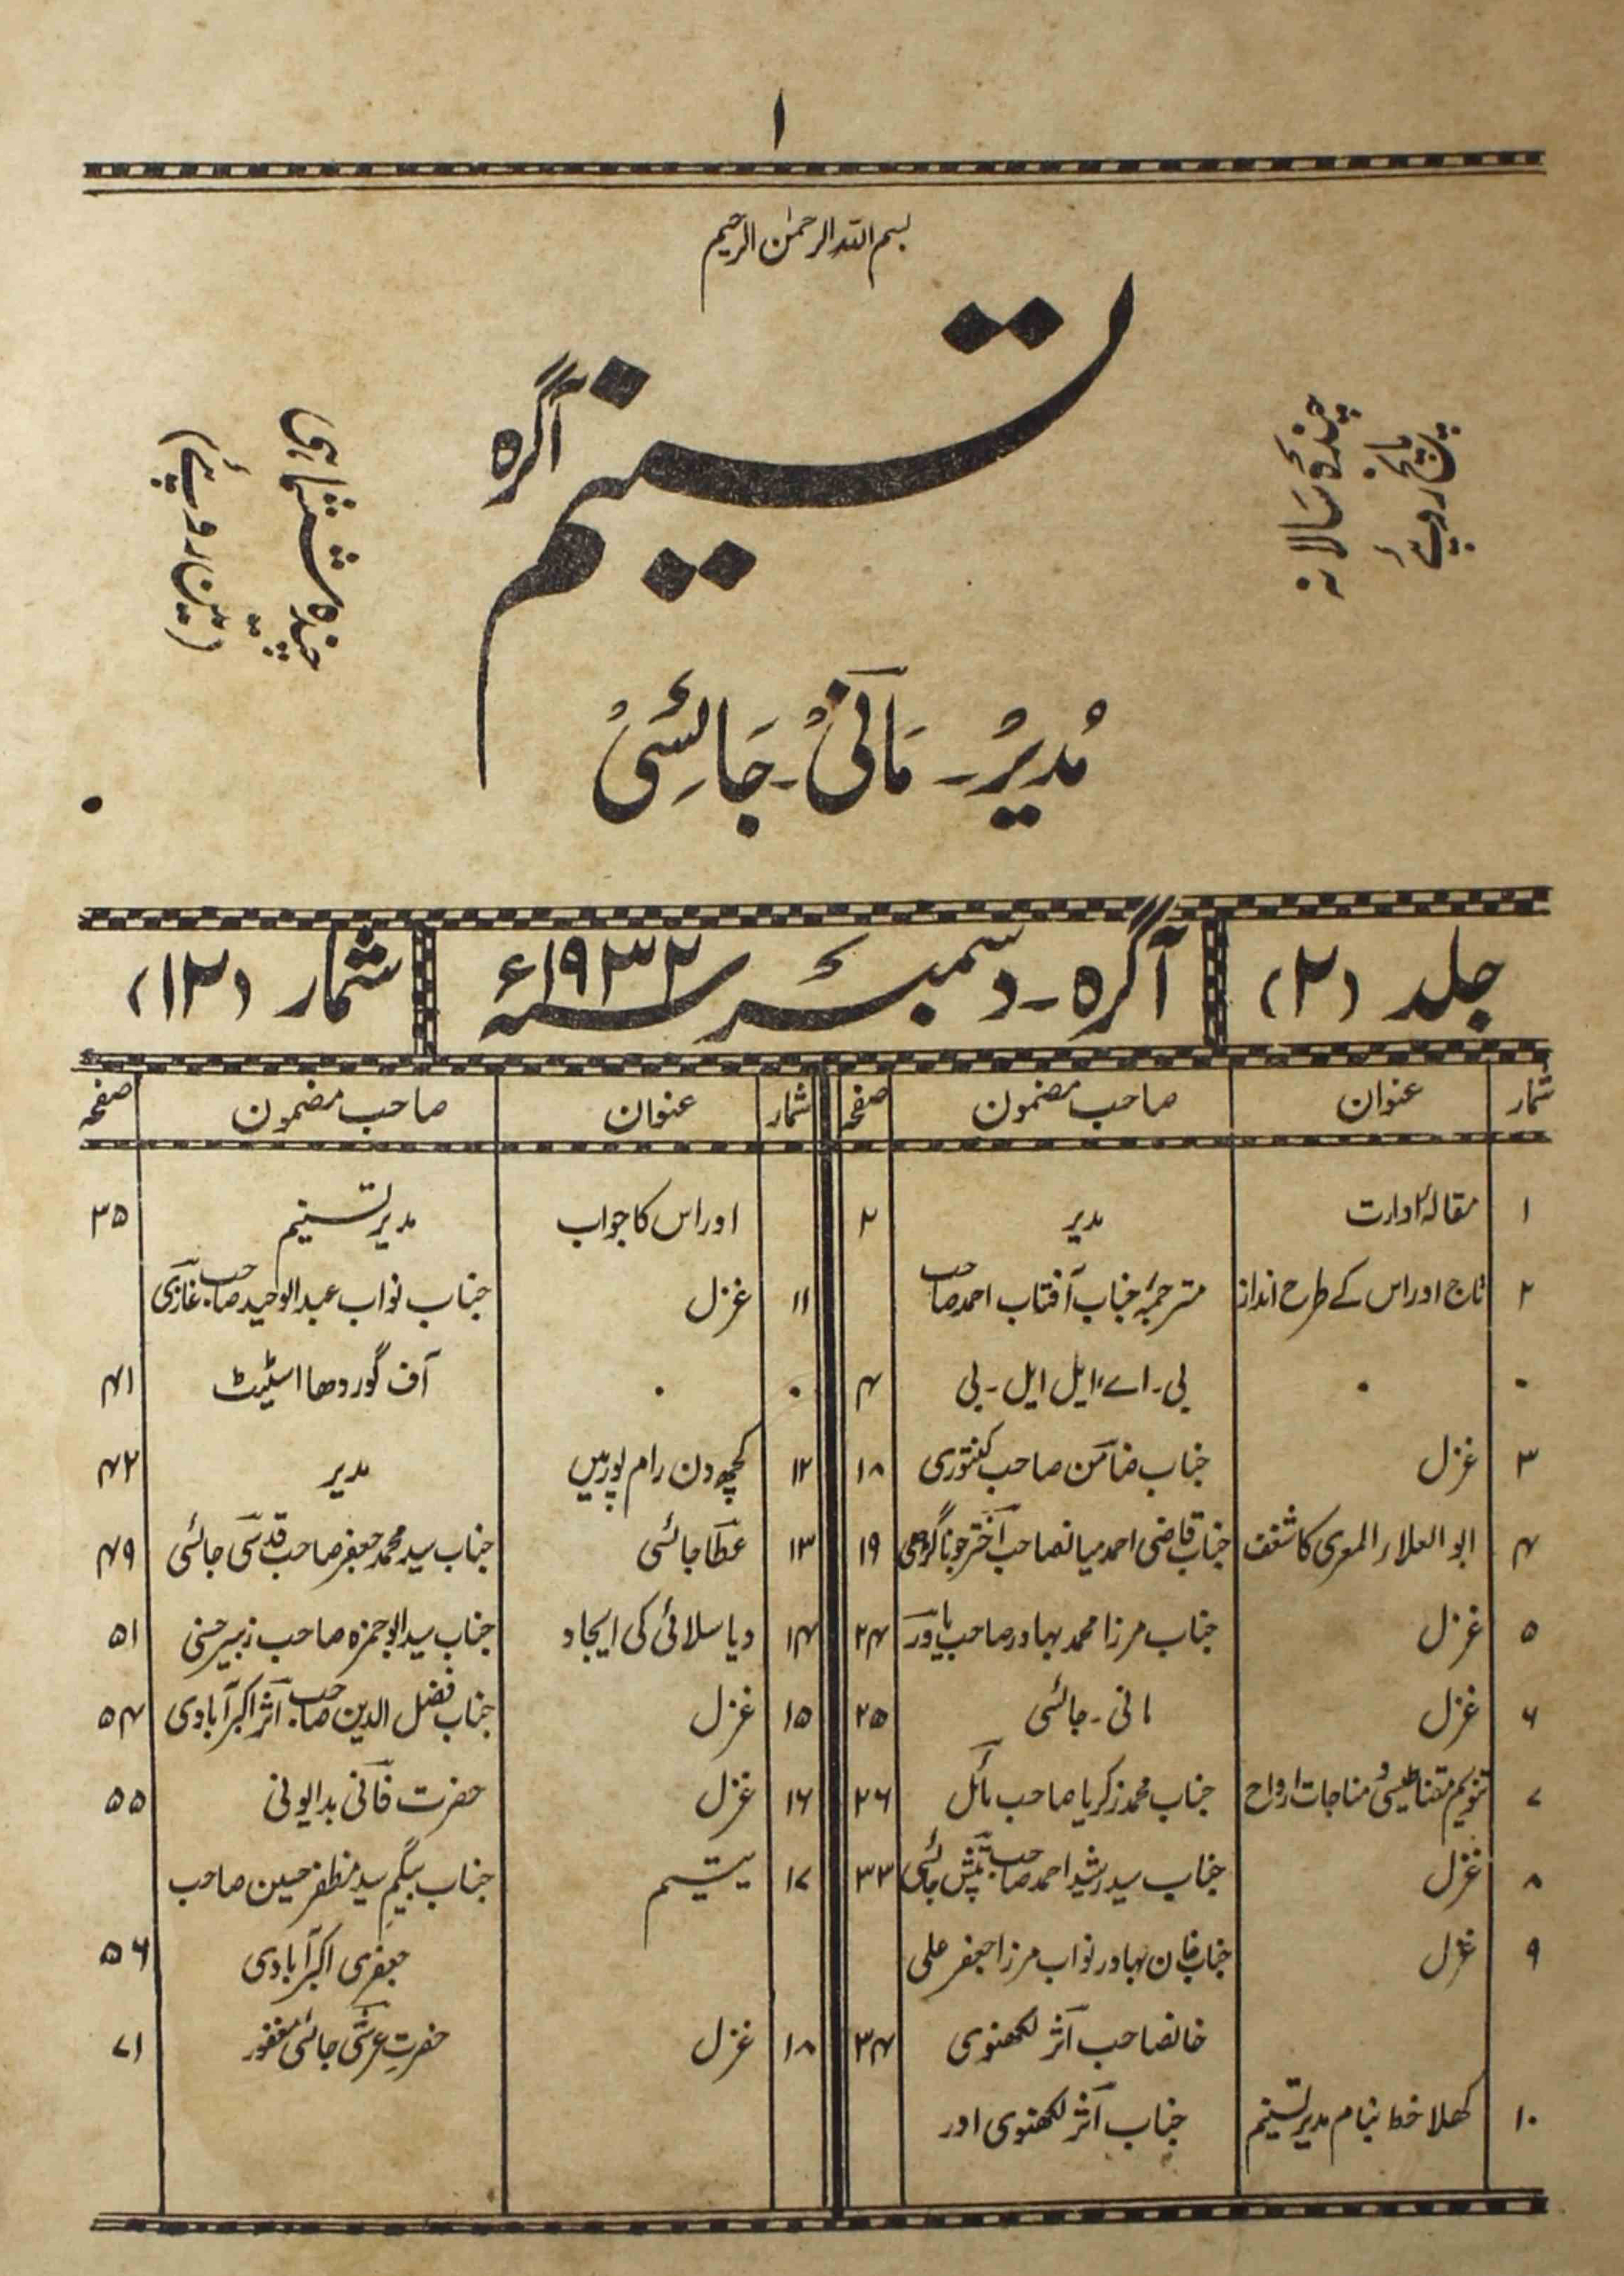 ۱
بسم اللہ الرحمٰن الرحیم
تسنیم
آگرہ
چندہ سالانہ
پانچ روپئے
چندہ ششماہی
(تین روپئے)
مُدیرُ۔ مَانیْ۔ جَائِسیْ
جلد (۲) آگرہ۔ دسمبر سنہ ۱۹۳۲ء شمار (۱۲)
شمار عنوان صاحب مضمون صفحہ
۱ مقالۂ ادارت مدیر ۲
۲ تاج اور اس کے طرح انداز مترجمۂ جناب آفتاب احمد صاحب
۰ ۰ بی۔ اے، ایل ایل۔ بی ۴
۳ غزل جناب ضامن صاحب کنتوری ۱۸
۴ ابو العلاء المعری کا شغف جناب قاضی احمد میانصاحب اختر جوناگڑھی ۱۹
۵ غزل جناب مرزا محمد بہادر صاحب یاور ۲۴
۶ غزل مانی۔ جائسی ۲۵
۷ تنویم مقناطیسی و مناجات ارواح جناب محمد زکریا صاحب مائل ۲۶
۸ غزل جناب سید رشید احمد صاحب تپش جائسی ۳۳
۹ غزل جناب خان بہادر نواب مرزا جعفر علی
خانصاحب اثر لکھنوی ۳۴
۱۰ کھلا خط بنام مدیر تسنیم جناب اثر لکھنوی اور
شمار عنوان صاحب مضمون صفحہ
اور اس کا جواب مدیر تسنیم ۳۵
۱۱ غزل جناب نواب عبدالوحید صاحب غازی
۰ ۰ آف گوردھا اسٹیٹ ۴۱
۱۲ کچھ دن رام پور میں مدیر ۴۲
۱۳ عطا جائسی جناب سید محمد جعفر صاحب قدسی جائسی ۴۹
۱۴ دیا سلائی کی ایجاد جناب سید ابو حمزہ صاحب زبیر حسنی ۵۱
۱۵ غزل جناب فضل الدین صاحب اثر اکبر آبادی ۵۴
۱۶ غزل حضرت فانی بدایونی ۵۵
۱۷ یتیم جناب بیگم سید مظفر حسین صاحب
جعفری اکبر آبادی ۵۶
۱۸ غزل حضرتِ عرشی جائسی مغفور ۷۱